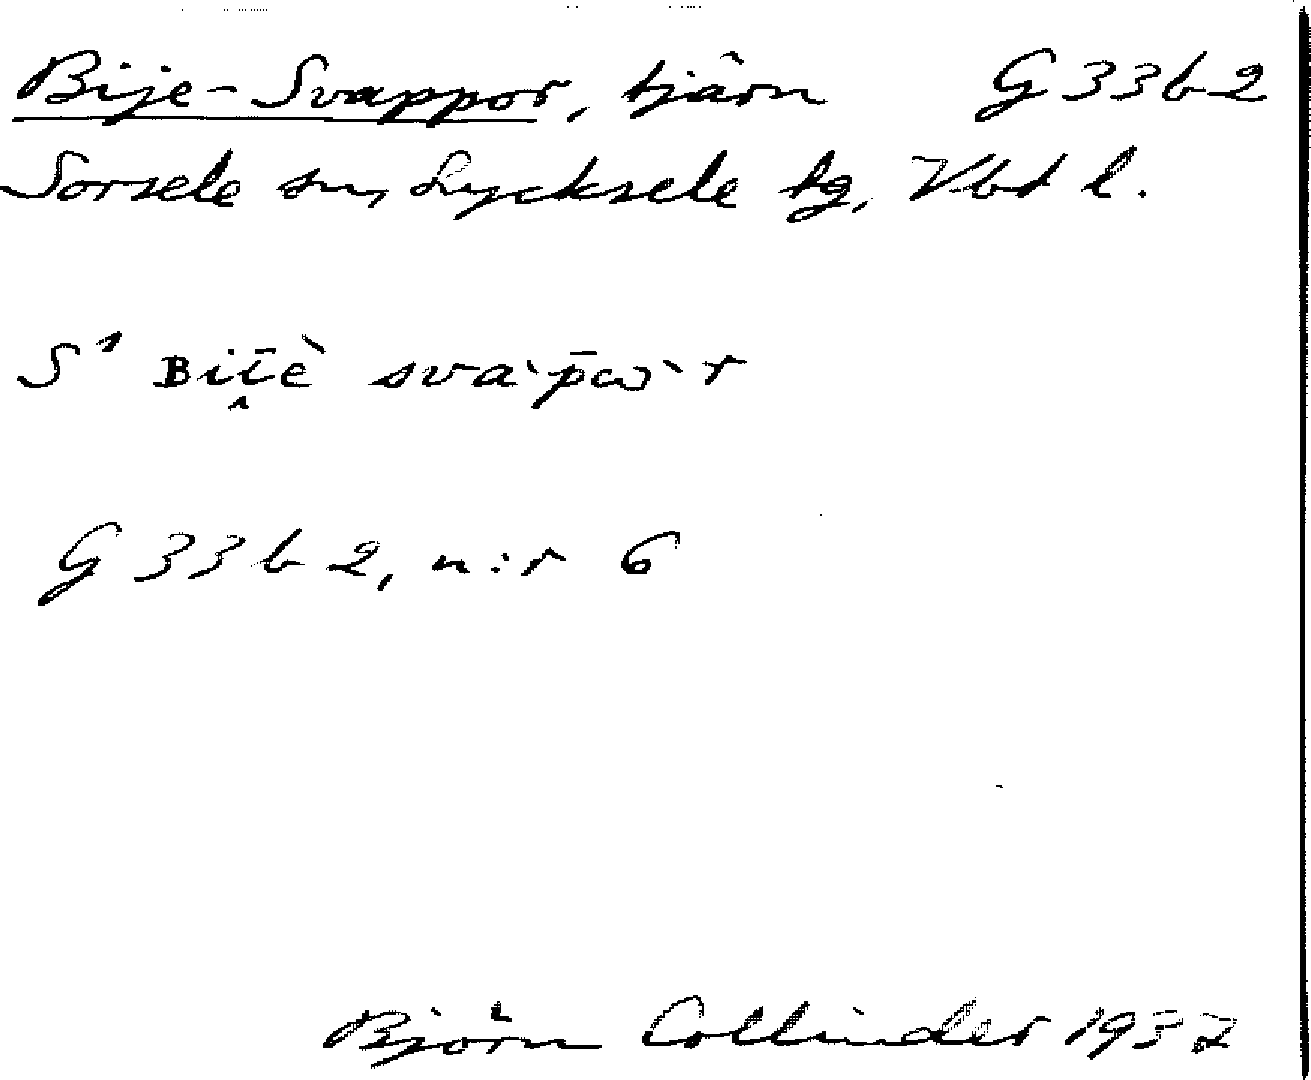 Bije-Svappor, tjärn G 33b2
Sorsele sn, Lycksele tg, Vbd l.
S¹ Bi
G 33 b 2, n:r 6
Björn Collinder 1937